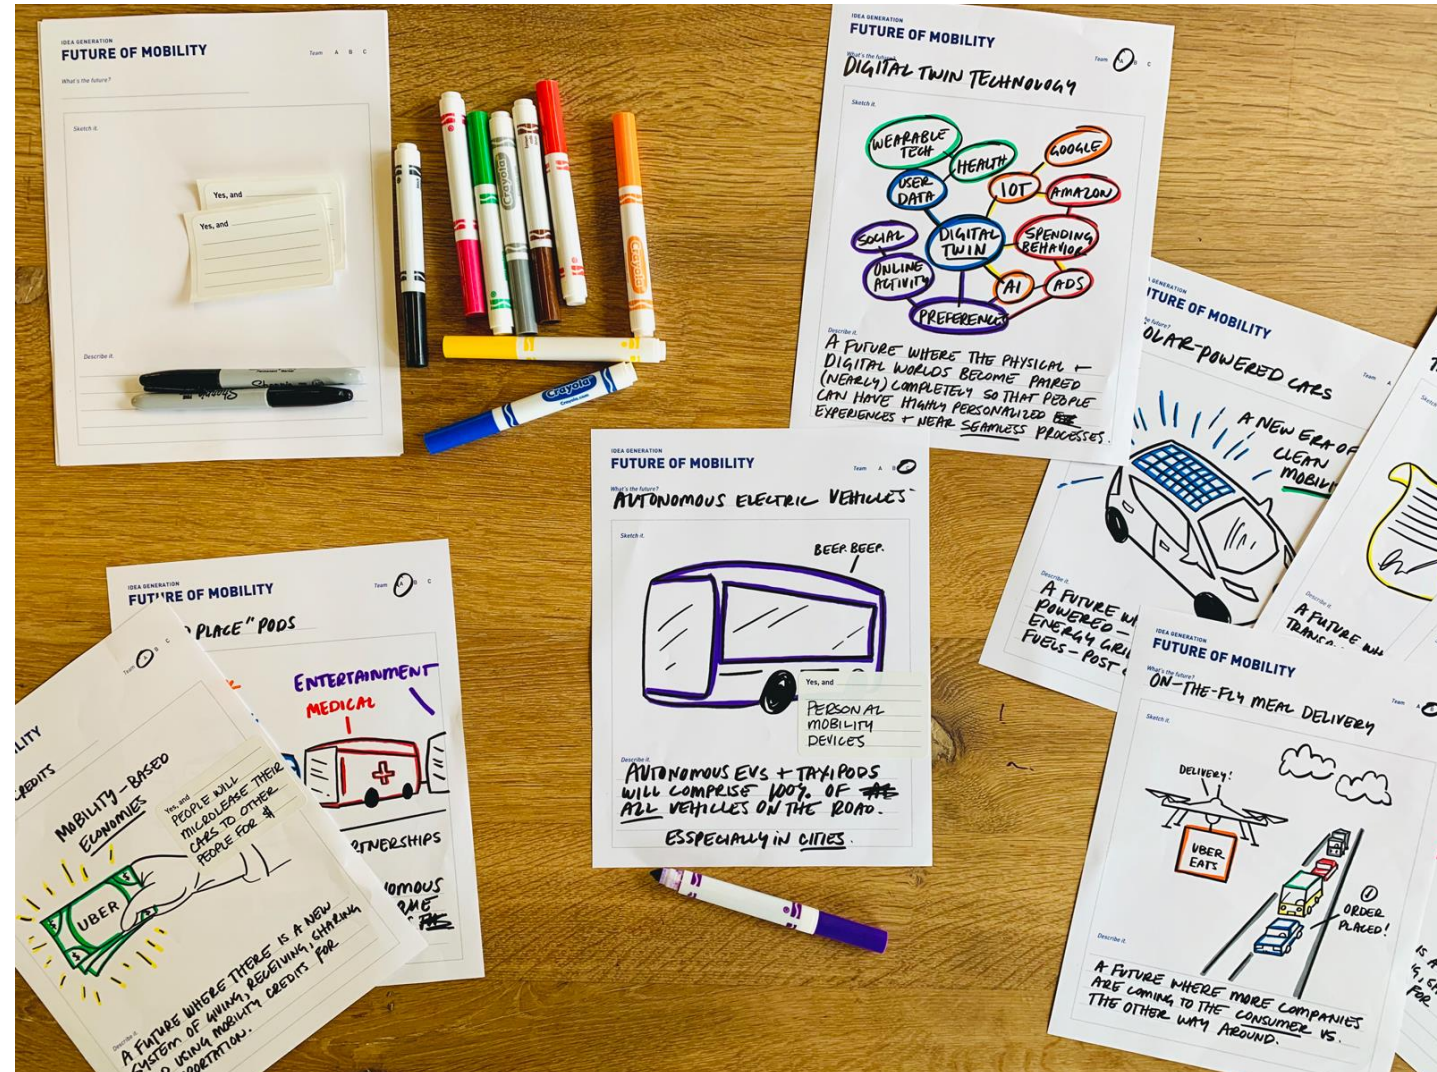 IDEA GENERATION
FUTURE OF MOBILITY
Team A B C
What's the future?
Sketch it.
Yes, and
Yes, and
Describe it.
Sharpie
Sharpie
Crayola
Crayola
Crayola
Crayola.com
IDEA GENERATION
FUTURE OF MOBILITY
Team A B C
What's the future?
DIGITAL TWIN TECHNOLOGY
Sketch it.
WEARABLE
TECH
HEALTH
GOOGLE
USER
DATA
IOT
AMAZON
SOCIAL
DIGITAL
TWIN
SPENDING
BEHAVIOR
ONLINE
ACTIVITY
AI
ADS
PREFERENCES
Describe it.
A FUTURE WHERE THE PHYSICAL +
DIGITAL WORLDS BECOME PAIRED
(NEARLY) COMPLETELY SO THAT PEOPLE
CAN HAVE HIGHLY PERSONALIZED
EXPERIENCES + NEAR SEAMLESS PROCESSES.
GENERATION
TURE OF MOBILITY
the future?
OLAR-POWERED CARS
Team A
A NEW ERA OF
CLEAN
MOBILIT
Describe it.
A FUTURE W
POWERED-
ENERGY GRI
FUELS-POST-
Sketch
Describe it.
A FUTURE WH
TRANS
IDEA GENERATION
FUTURE OF MOBILITY
Team A B C
What's the future?
AUTONOMOUS ELECTRIC VEHICLES
Sketch it.
BEEP. BEEP.
Yes, and
PERSONAL
MOBILITY
DEVICES
Describe it.
AUTONOMOUS EVS + TAXIPODS
WILL COMPRISE 100% OF
ALL VEHICLES ON THE ROAD.
ESSPECIALLY IN CITIES.
IDEA GENERATION
FUTURE OF MOBILITY
Team A B C
PLACE" PODS
ENTERTAINMENT
MEDICAL
RTNERSHIPS
NOMOUS
Team A B C
ILITY
CREDITS
MOBILITY-BASED
ECONOMIES
Yes, and
PEOPLE WILL
MICROLEASE THEIR
CARS TO OTHER
PEOPLE FOR $
UBER
Describe it.
A FUTURE WHERE THERE IS A NEW
SYSTEM OF GIVING, RECEIVING, SHARING
USING MOBILITY CREDITS FOR
PORTATION.
IDEA GENERATION
FUTURE OF MOBILITY
What's the future?
ON-THE-FLY MEAL DELIVERY
Team A
Sketch it.
DELIVERY!
UBER
EATS
1
ORDER
PLACED!
Describe it.
A FUTURE WHERE MORE COMPANIES
ARE COMING TO THE CONSUMER VS.
THE OTHER WAY AROUND.
IS A
FOR